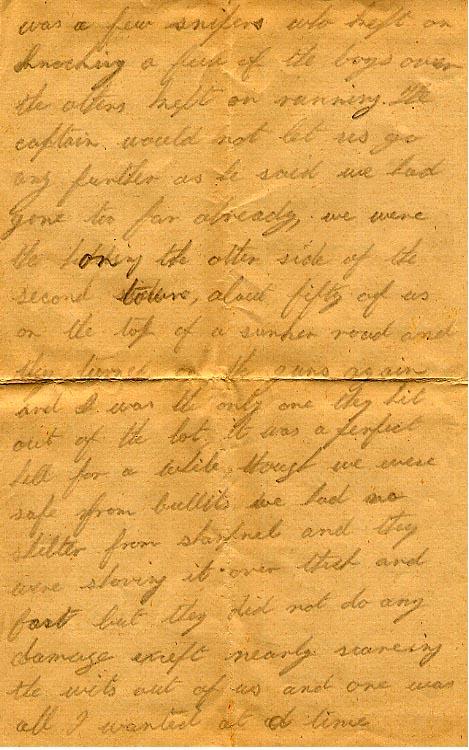 was a few snipers who kept on
knocking a few of the boys over
the others kept on running. The
captain would not let us go
any further as he said we had
gone too far already, we were
the on the other side of the
second town, about fifty of us
on the top of a sunken road and
they turned on the guns again
and I was the only one they hit
out of the lot. it was a perfect
hell for a while, though we were
safe from bullits we had no
shelter from shrapnel and they
were shoving it over thick and
fast but they did not do any
damage except nearly scareing
the wits out of us and one was
all I wanted at a time